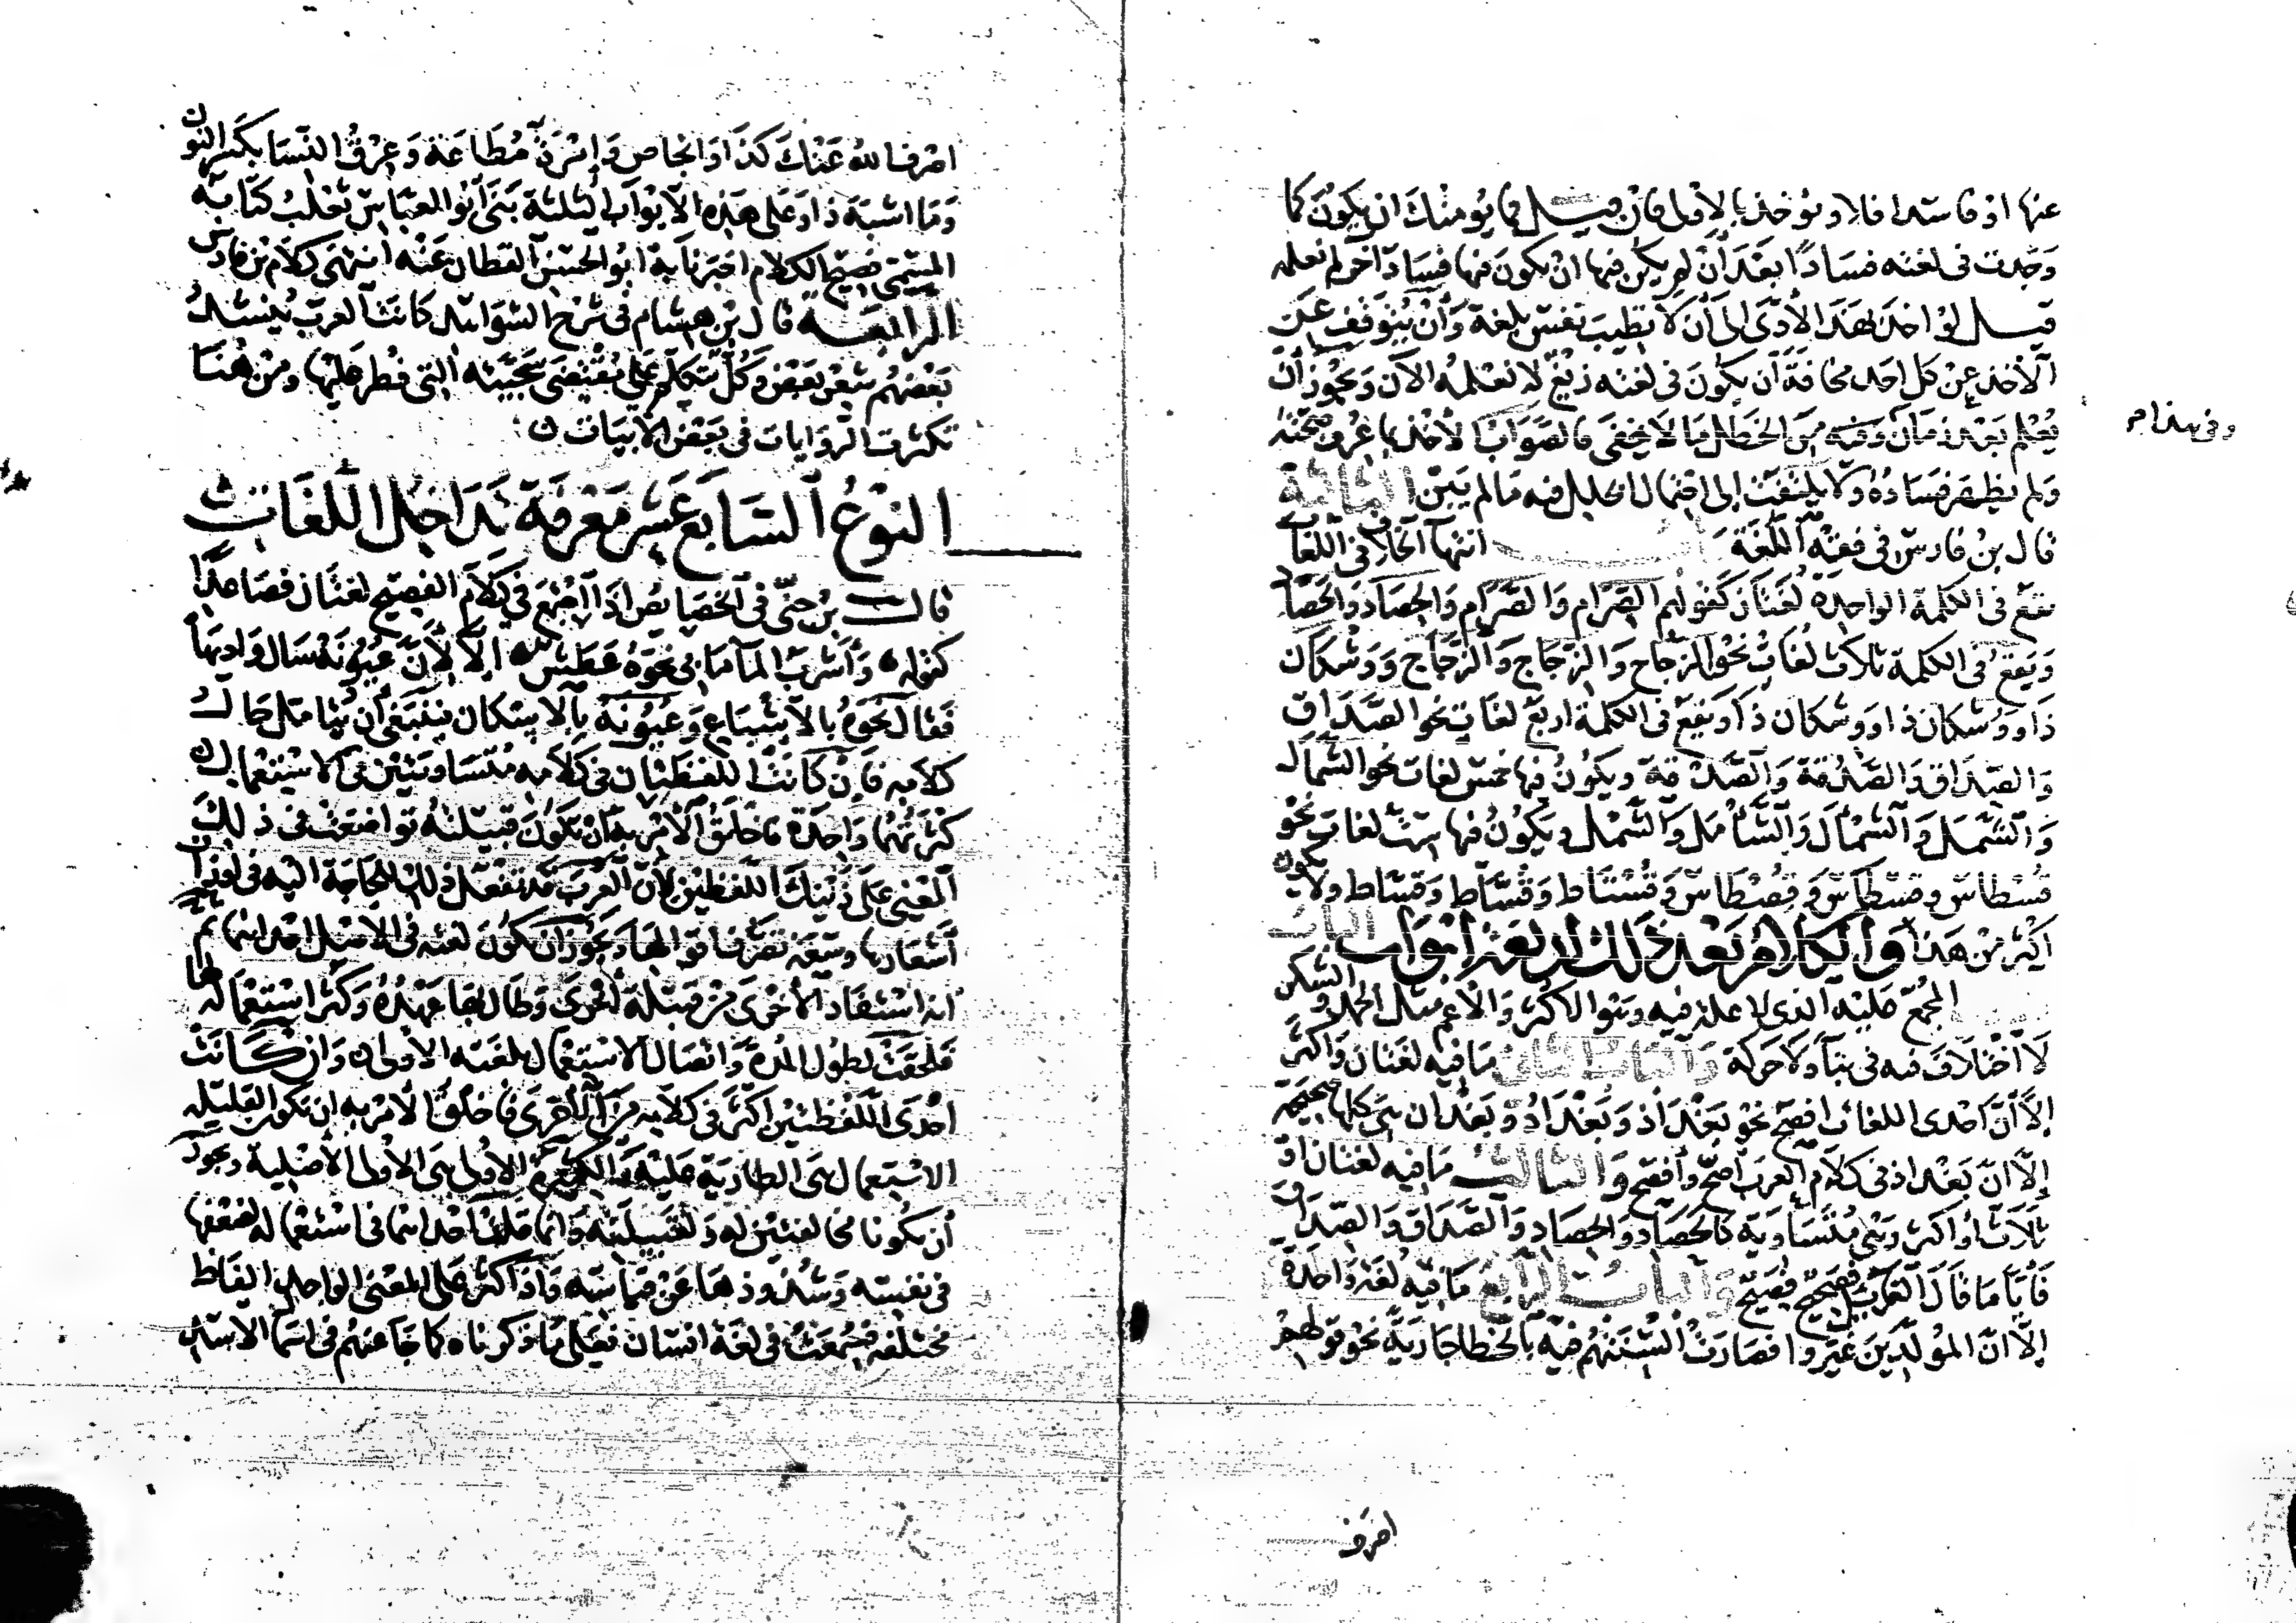 عنها او فاسدا فلا ويؤخذ بالاولى فان قيل فما يؤمنك ان يكون كما
وجدت في لغته فسادا بعد أن لم يكن فيها ان يكون فيها فسادا آخر لم تعلمه
قيل لو اخذ بهذا لأدى الى أن لا تطيب نفس بلغة وأن يتوقف عن
الأخذ عن كل احد مخافة أن يكون في لغته زيغ لا نعلمه الآن ويجوز أن
يعلم بعد زمان وفيه من الخطل ما لا يخفى فالصواب الأخذ بما عرف صحته
وفي هذا م
ولم يظهر فساده ولا يلتفت إلى احتمال الخلل فيه ما لم يبين الثالثة
قال بن فارس في فقه اللغة انتهاء الخلاف في اللغات
تقع في الكلمة الواحدة لغتان كقولهم الصرام والصرام والحصاد والحصاد
ويقع في الكلمة ثلاث لغات نحو الزجاج والزجاج والزجاج ووشكان
ذا ووشكان ذا ووشكان ذا ويقع في الكلمة اربع لغات نحو الصداق
والصداق والصدقة والصدقة ويكون فيها خمس لغات نحو الشمال
والشمل والشمأل والشأمل والشمل ويكون فيها ست لغات نحو
قسطاس وقسطاس وقصطاس وقستاط وقساط وقساط ولا يكون
اكثر من هذا والكلام بعد ذلك اربعة ابواب الباب
المجمع عليه الذي لا علة فيه وهو الاكثر والاعم مثل الحمد والشكر
لا اختلاف فيه في بناء ولا حركة والباب الثاني ما فيه لغتان واكثر
إلا أن احدى اللغات افصح نحو بغداذ وبغداد وبغدان هي كلها صحيحة
إلا ان بغداد في كلام العرب أصح وأفصح والثالث ما فيه لغتان او
ثلاث او اكثر وهي متساوية كالحصاد والحصاد والصداق والصداق
فأيا ما قال القائل فصحيح فصيح والباب الرابع ما فيه لغة واحدة
إلا ان المولدين غيروا فصارت ألسنتهم فيه بالخطا جارية نحو قولهم
اصرف
اصرف الله عنك كذا وانجاص وامرة مطاعة وعرق النسا بكسر النون
وما اشبه ذا وعلى هذه الابواب الثلثة بنى أبو العباس ثعلب كتابه
المسمى فصيح الكلام اخبرنا به ابو الحسن القطان عنه انتهى كلام بن فارس
الرابعة قال بن هشام في شرح الشواهد كانت العرب ينشد
بعضهم شعر بعض وكل يتكلم على مقتضى سجيته التي فطر عليها ومن هنا
تكثرت الروايات في بعض الأبيات
النوع السابع عشر معرفة تداخل اللغات
قال بن جني في الخصايص اذا اجتمع في كلام الفصيح لغتان فصاعدا
كقوله وأشرب الماء ما بي نحوه عطش الا لأن عيونه سال واديها
فقال نحوه بالاشباع وعيونه بالاسكان فينبغي أن يتامل حال
كلامه فان كانت اللفظتان في كلامه متساويتين في الاستعمال
كثرتهما واحدة فاخلق الأمر به ان تكون قبيلته تواضعت في ذلك
المعنى على ذينك اللفظين لأن العرب قد تفعل ذلك للحاجة اليه في اوزان
أشعارها وسعة تصرف اقوالها ويجوز ان تكون لغته في الاصل احداهما ثم
انه استفاد الأخرى من قبيلة أخرى وطال بها عهده وكثر استعماله لها
فلحقت لطول المدة واتصال الاستعمال بلغته الاولى وان كانت
احدى اللفظتين اكثر في كلامه من الأخرى فاخلق الأمر به ان تكون القليلة
الاستعمال هي الطارية عليه والكثيرة الاولى هي الأولى الأصلية ويجوز
أن يكونا مخالفتين له ولقبيلته وانما قلت احداهما في استعماله لضعفها
في نفسه وشذوذها عن قياسه واذا كثر على المعنى الواحد الفاظ
مختلفة فجمعت في لغة انسان فعلى ما ذكرناه كما جا عنهم في اسما الاسد